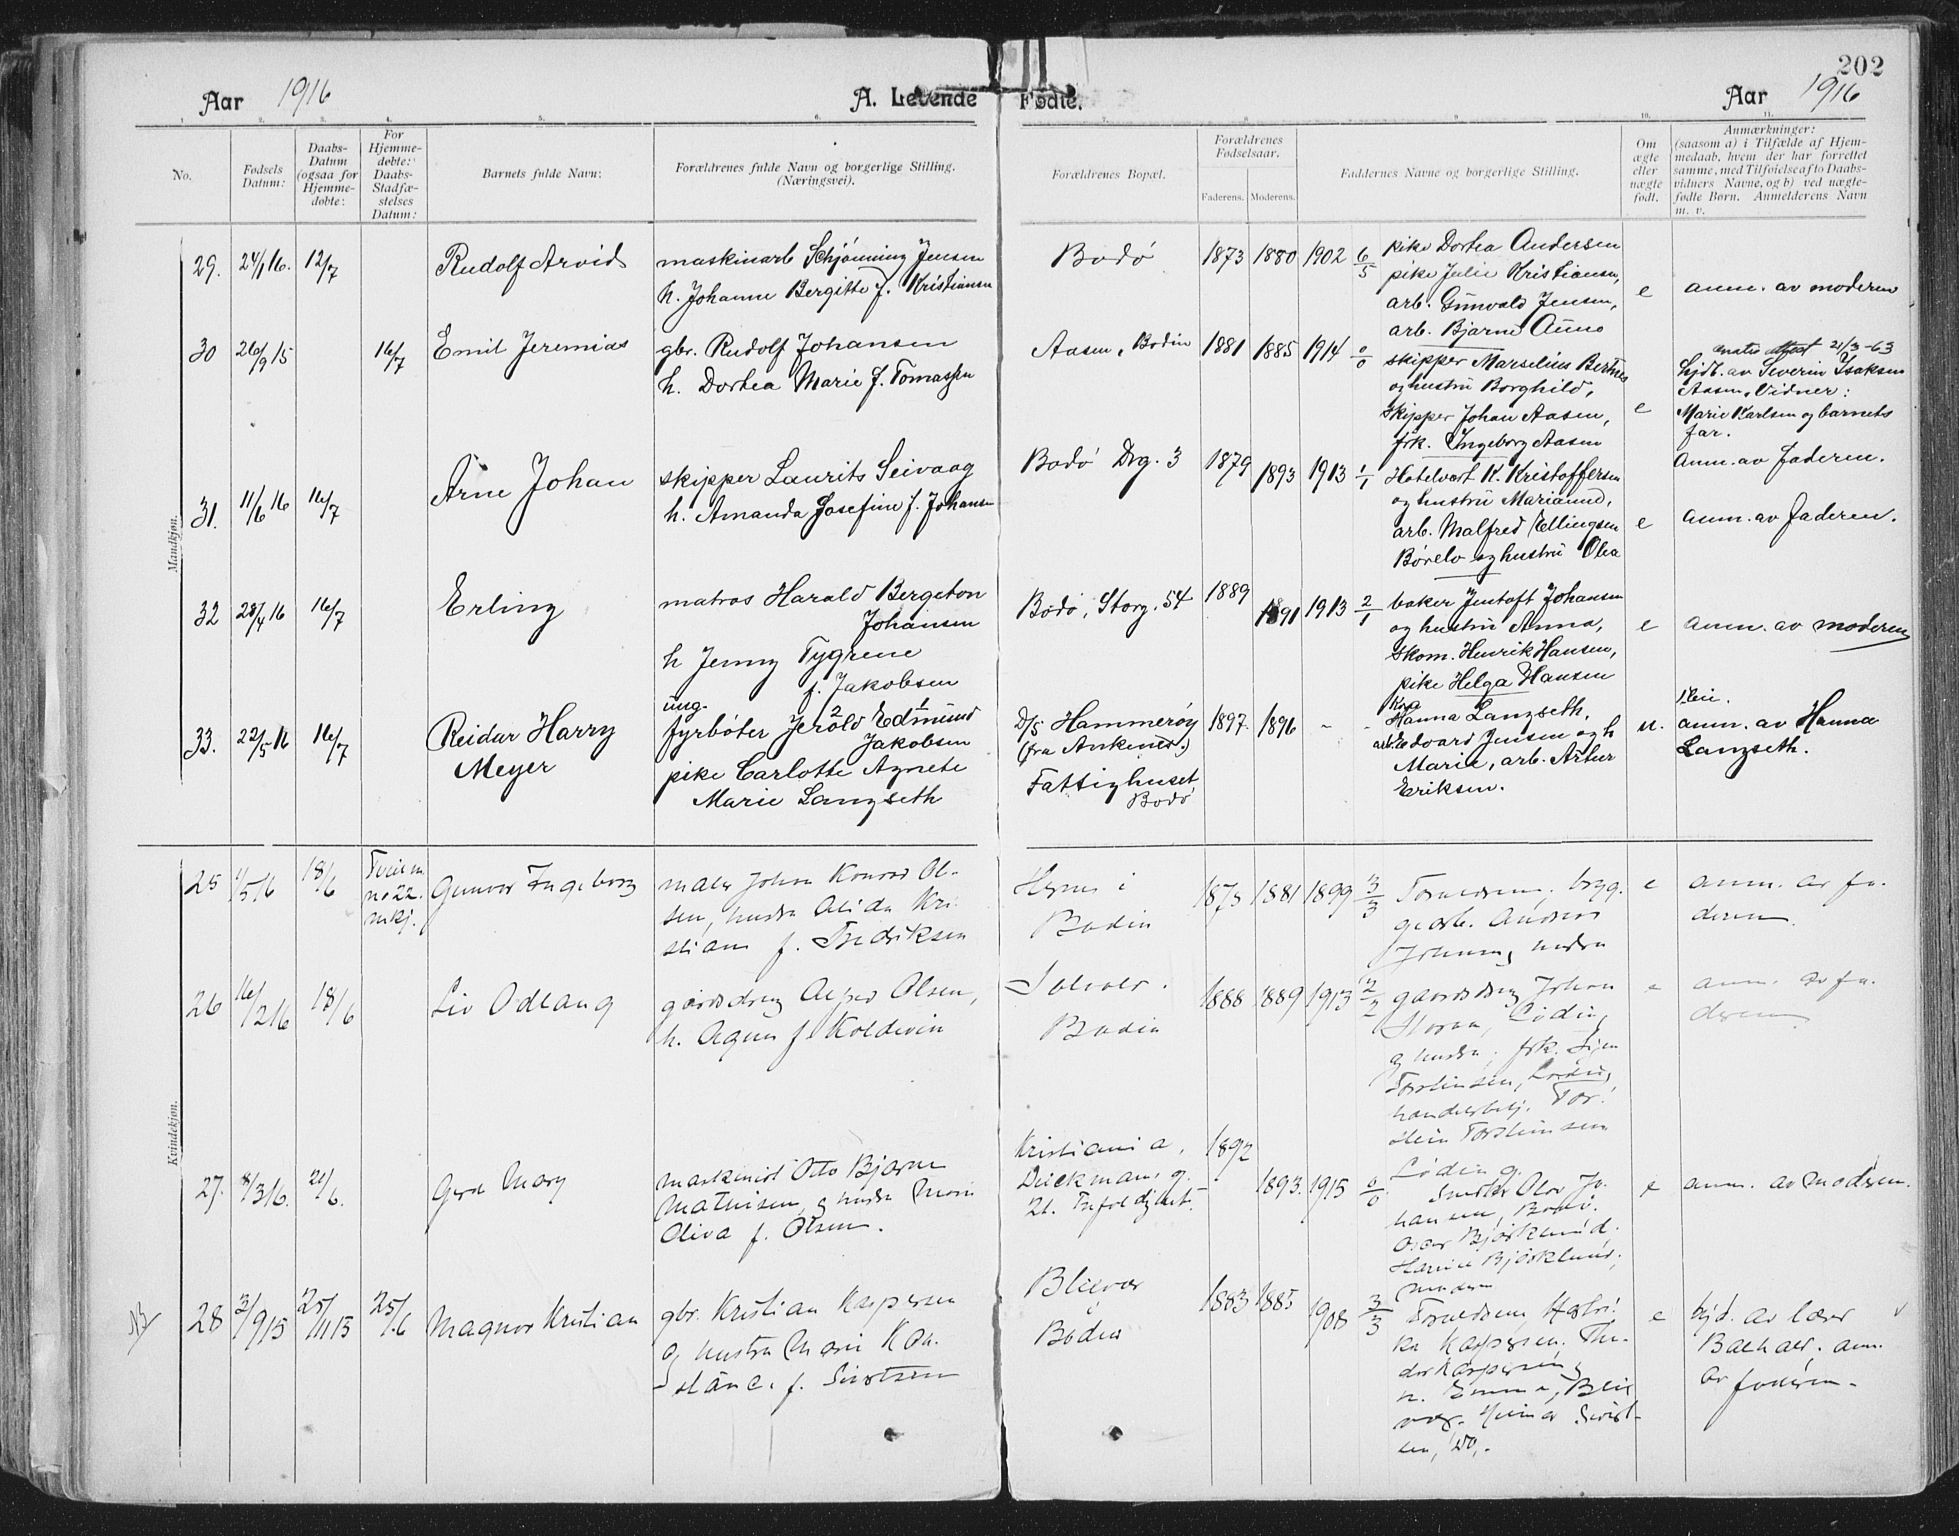 202
Aar 1916
A. Levende Fødte.
Aar 1916
1. 2. 3. 4. 5. 6. 7. 8. 9. 10. 11.
No.
Fødsels
Datum:
Daabs-
Datum
(ogsaa for
Hjemme-
døbte:
For
Hjemme-
døbte:
Daabs-
Stadfæ-
stelses
Datum:
Barnets fulde Navn:
Forældrenes fulde Navn og borgerlige Stilling.
(Næringsvei).
Forældrenes Bopæl.
Forældrenes
Fødselsaar.
Faderens. Moderens.
Faddernes Navne og borgerlige Stilling.
Om
ægte
eller
uægte
født.
Anmærkninger:
(saasom a) i Tilfælde af Hjem-
medaab. hvem der har forrettet
samme, med Tilføielse af to Daabs-
vidners Navne, og b) ved uægte-
fødte Børn. Anmelderens Navn
m. v.
Mandkjøn.
29. 24/1 16. 12/7
Rudolf Arvid
maskinarb Schjønning Jensen
h. Johanne Bergitte f. Kristiansen
Bodø
1873 1880 1902 6/5
pike Dortea Andersen
pike Julie Kristiansen,
arb. Gunvald Jensen,
arb. Bjarne Auno
e
anm. av moderen
30 26/9 15 16/7
Emil Jeremias
gbr. Rudolf Johansen
h. Dortea Marie f. Tomassen
Aasen, Bodin
1881 1885 1914 0/0
skipper Marselius Bertnes
og hustru Borghild,
skipper Johan Aasen,
frk. Ingeborg Aasen
e
21/3-63
hjdt. av Severin Isaksen
Aasen, Vidner:
Marie Karlsen og barnets
far.
Anm. av faderen.
31. 11/6 16 16/7
Arne Johan
skipper Laurits Seivaag
h. Amanda Josefine f. Johansen
Bodø Drg. 3
1879 1893 1913 1/1
Hotelvært K. Kristoffersen
og hustru Marianne,
arb. Malfred Ellingsen
Børelv og hustru Olea
e
anm. av faderen.
32 28/4 16 16/7
Erling
matros Harald Bergeton
Johansen
h Jenny Tygrene
f. Jakobsen
Bodø, Storg. 54
1889 1891 1913 2/1
baker Jentoft Johansen
og hustru Anna,
skom. Henrik Hansen,
pike Helga Hansen
e
anm. av moderen
33. 22/5 16 16/7
Reidar Harry
Meyer
ung.
fyrbøter Jerold Edmund
2 1
Jakobsen
pike Carlotte Agnete
Marie Langseth
D/S Hammerøy
(fra Ankenes.)
Fattighuset
Bodø
1897. 1896 - -
Hanna Langseth,
arb. Edvard Jensen og h
Marie, arb. Artur
Eriksen.
u.
anm. av Hanna
Langseth.
Kvindekjøn.
25 1/5 16 18/6
no 22.
mkj.
Gunvor Ingeborg
maler Johan Konrad Ol-
sen, hustru Alida Kri
stiane f. Fredriksen
Hernes i
Bodin
1875 1881 1899 3/3
Forældrene, bryg.
gearb. Andreas
hustru
e
anm. av fa-
deren
26 16/2 16 18/6
Liv Odlaug
gaardsdreng Alfred Olsen,
h. Agnes f. Koldevin
Bodin
1888 1889 1913 2/2
gaardsdreng Johan
Løding
og hustru, frk. Signe
Torstensen, Løding,
handelsbetj. Tor-
stein Torsteinsen
Løding.
e
anm. av fa-
deren
27. 8/3 16. 21/6.
Gerd Mary
maskinist Otto Bjarne
Mathisen og hustru Marie
Oliva f. Olsen.
Kristiania,
1892 1893. 1915 0/0
Smeder Olav Jo-
hansen, Bodø.
Oscar Bjørklund,
Bjørklund,
moderen
e
anm. av moderen.
NB/ 28 3/9 15 25/11 15 25/6
Magnor Kristian
gbr. Kristian Kaspersen
og hustru Marie Kon-
stance f. Sivertsen
Blixvær
Bodin
1883 1885 1908 3/3
Forældrene,
Kaspersen,
Kaspersen og
h. Emma, Blix
vær. Sivert-
sen, do.
e
hjd. av lærer
anm.
av faderen.